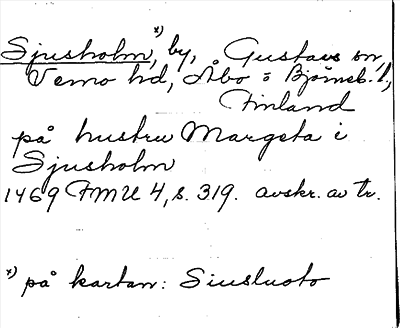 Sjusholm,*) by, Gustavs sn,
Vemo hd, Åbo o Björneb. l,
Finland
på hustru Margeta i
Sjusholm
1469 FMU 4, s. 319. avskr. av tr.
*) på kartan: Siusluoto